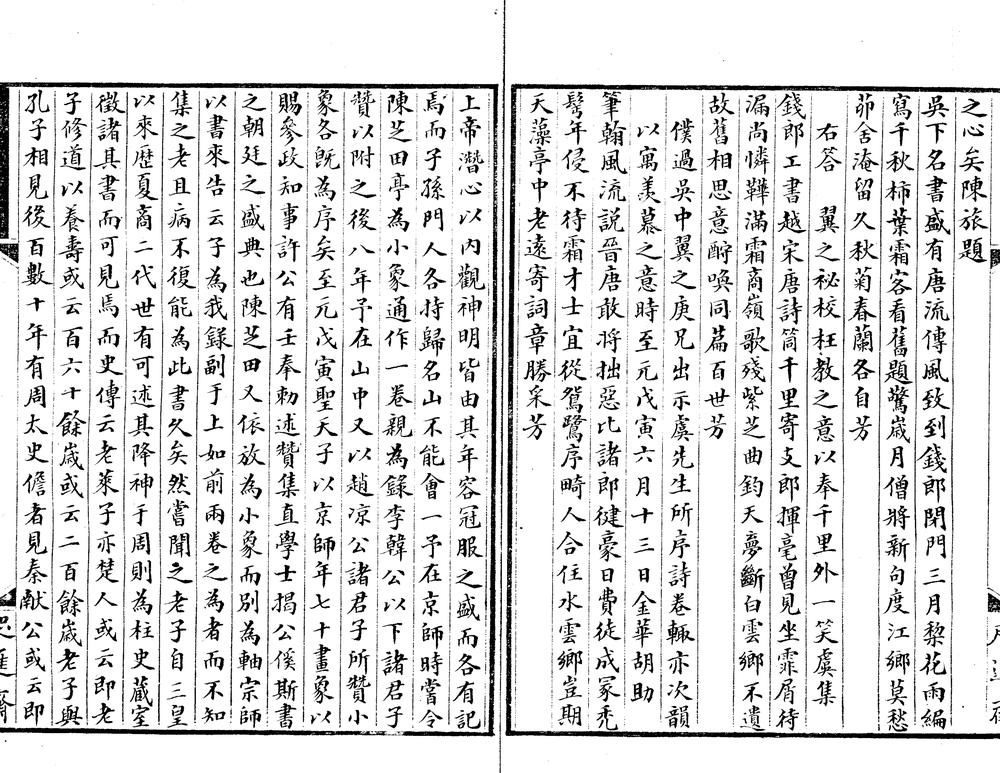 之心矣陳旅題
吳下名書盛有唐流傳風致到錢郎閉門三月棃花雨編
寫千秋柿葉霜客看舊題驚嵗月僧將新句度江鄉莫愁
茆舍淹留久秋菊春蘭各自芳
右答　翼之祕校枉教之意以奉千里外一笑虞集
錢郎工書越宋唐詩筒千里寄支郎揮毫曾見坐霏屑待
漏尚憐鞾滿霜商嶺歌殘紫芝曲鈞天夢斷白雲鄉不遺
故舊相思意酧喚同篇百世芳
僕過吳中翼之庚兄出示虞先生所序詩卷輙亦次韻
以寓羡慕之意時至元戊寅六月十三日金華胡助
筆翰風流説晉唐敢將拙惡比諸郎健豪日費徒成冢禿
髩年侵不待霜才士宜從鴛鷺序畸人合住水雲鄉豈期
天藻亭中老逺寄詞章勝采芳
上帝濳心以内觀神明皆由其年容冠服之盛而各有記
焉而子孫門人各持歸名山不能會一予在京師時嘗令
陳芝田亭為小象通作一卷親為録李韓公以下諸君子
贊以附之後八年予在山中又以趙凉公諸君子所贊小
象各旣為序矣至元戊寅聖天子以京師年七十畫象以
賜參政知事許公有壬奉勅述贊集直學士揭公傒斯書
之朝廷之盛典也陳芝田又依放為小象而别為軸宗師
以書來告云子為我録副于上如前兩卷之為者而不知
集之老且病不復能為此書久矣然嘗聞之老子自三皇
以來歴夏商二代世有可述其降神于周則為柱史蔵室
徵諸其書而可見焉而史傳云老萊子亦楚人或云即老
子修道以養壽或云百六十餘嵗或云二百餘嵗老子與
孔子相見後百數十年有周太史儋者見秦献公或云即